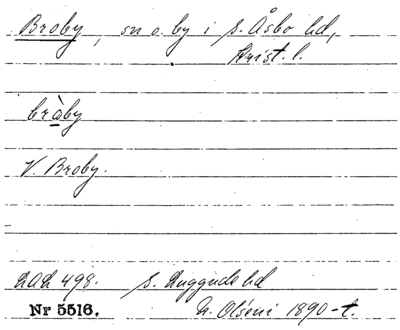 Broby, sn o. by i S. Åsbo hd,
Krist. l.
bràby
V. Broby.
LAL 498. S. Luggude hd
Nr 5516. N. Olséni 1890-t.